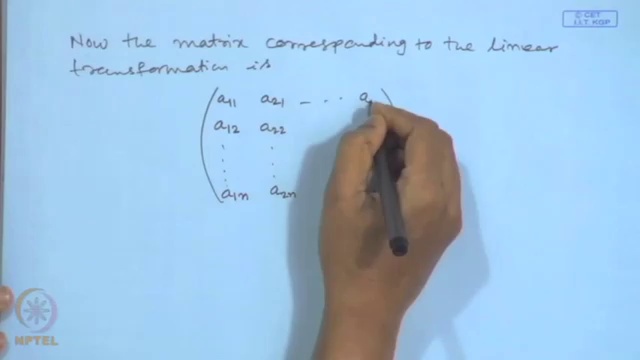 © CET
I.I.T. KGP
Now the matrix corresponding to the linear
transformation is
a11 a21 - - - a
a12 a22
a1n a2n
NPTEL